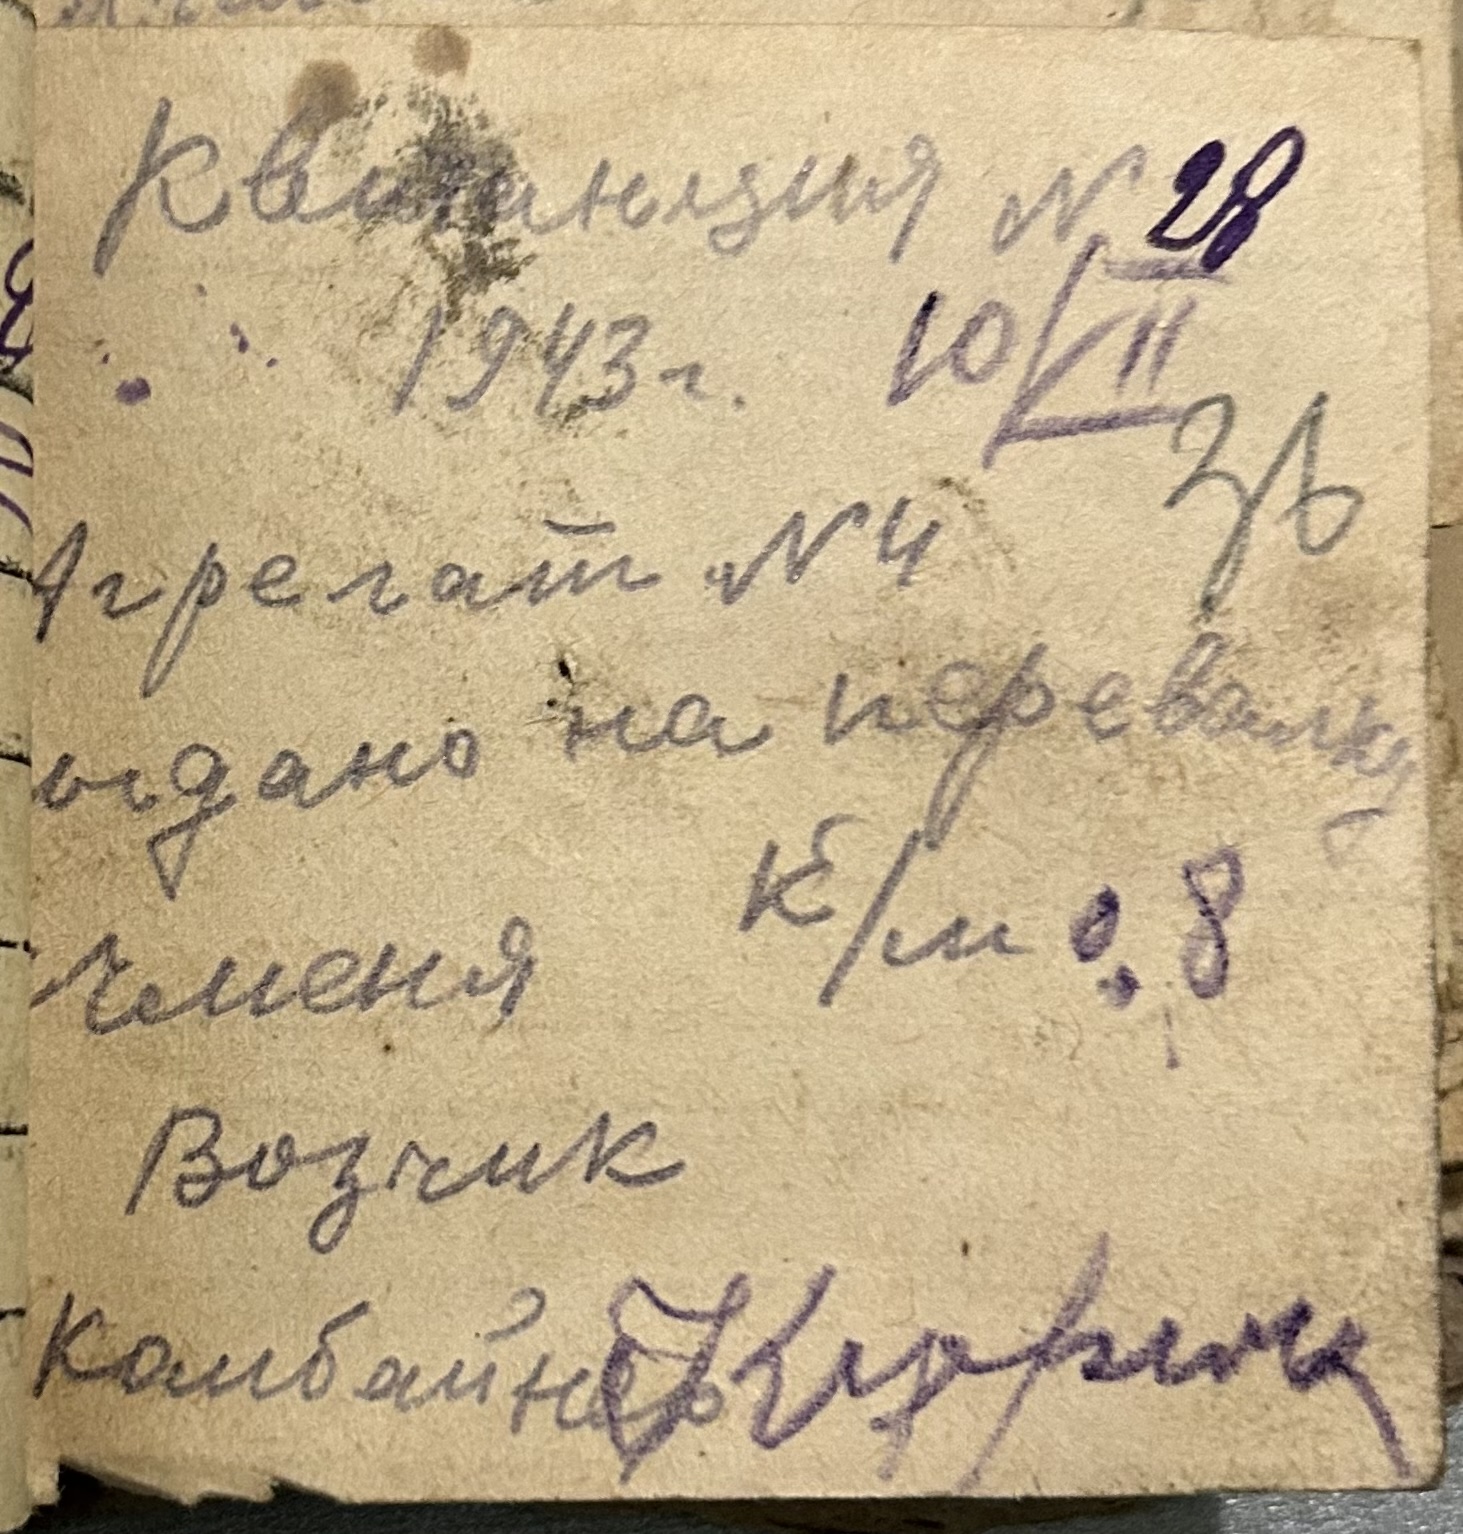 Квитанция N 28
1943 г. 10/VII
Агрегат N 4
ыдано на перевалку
ячменя к/м 0,8
Возчик
Комбайнер